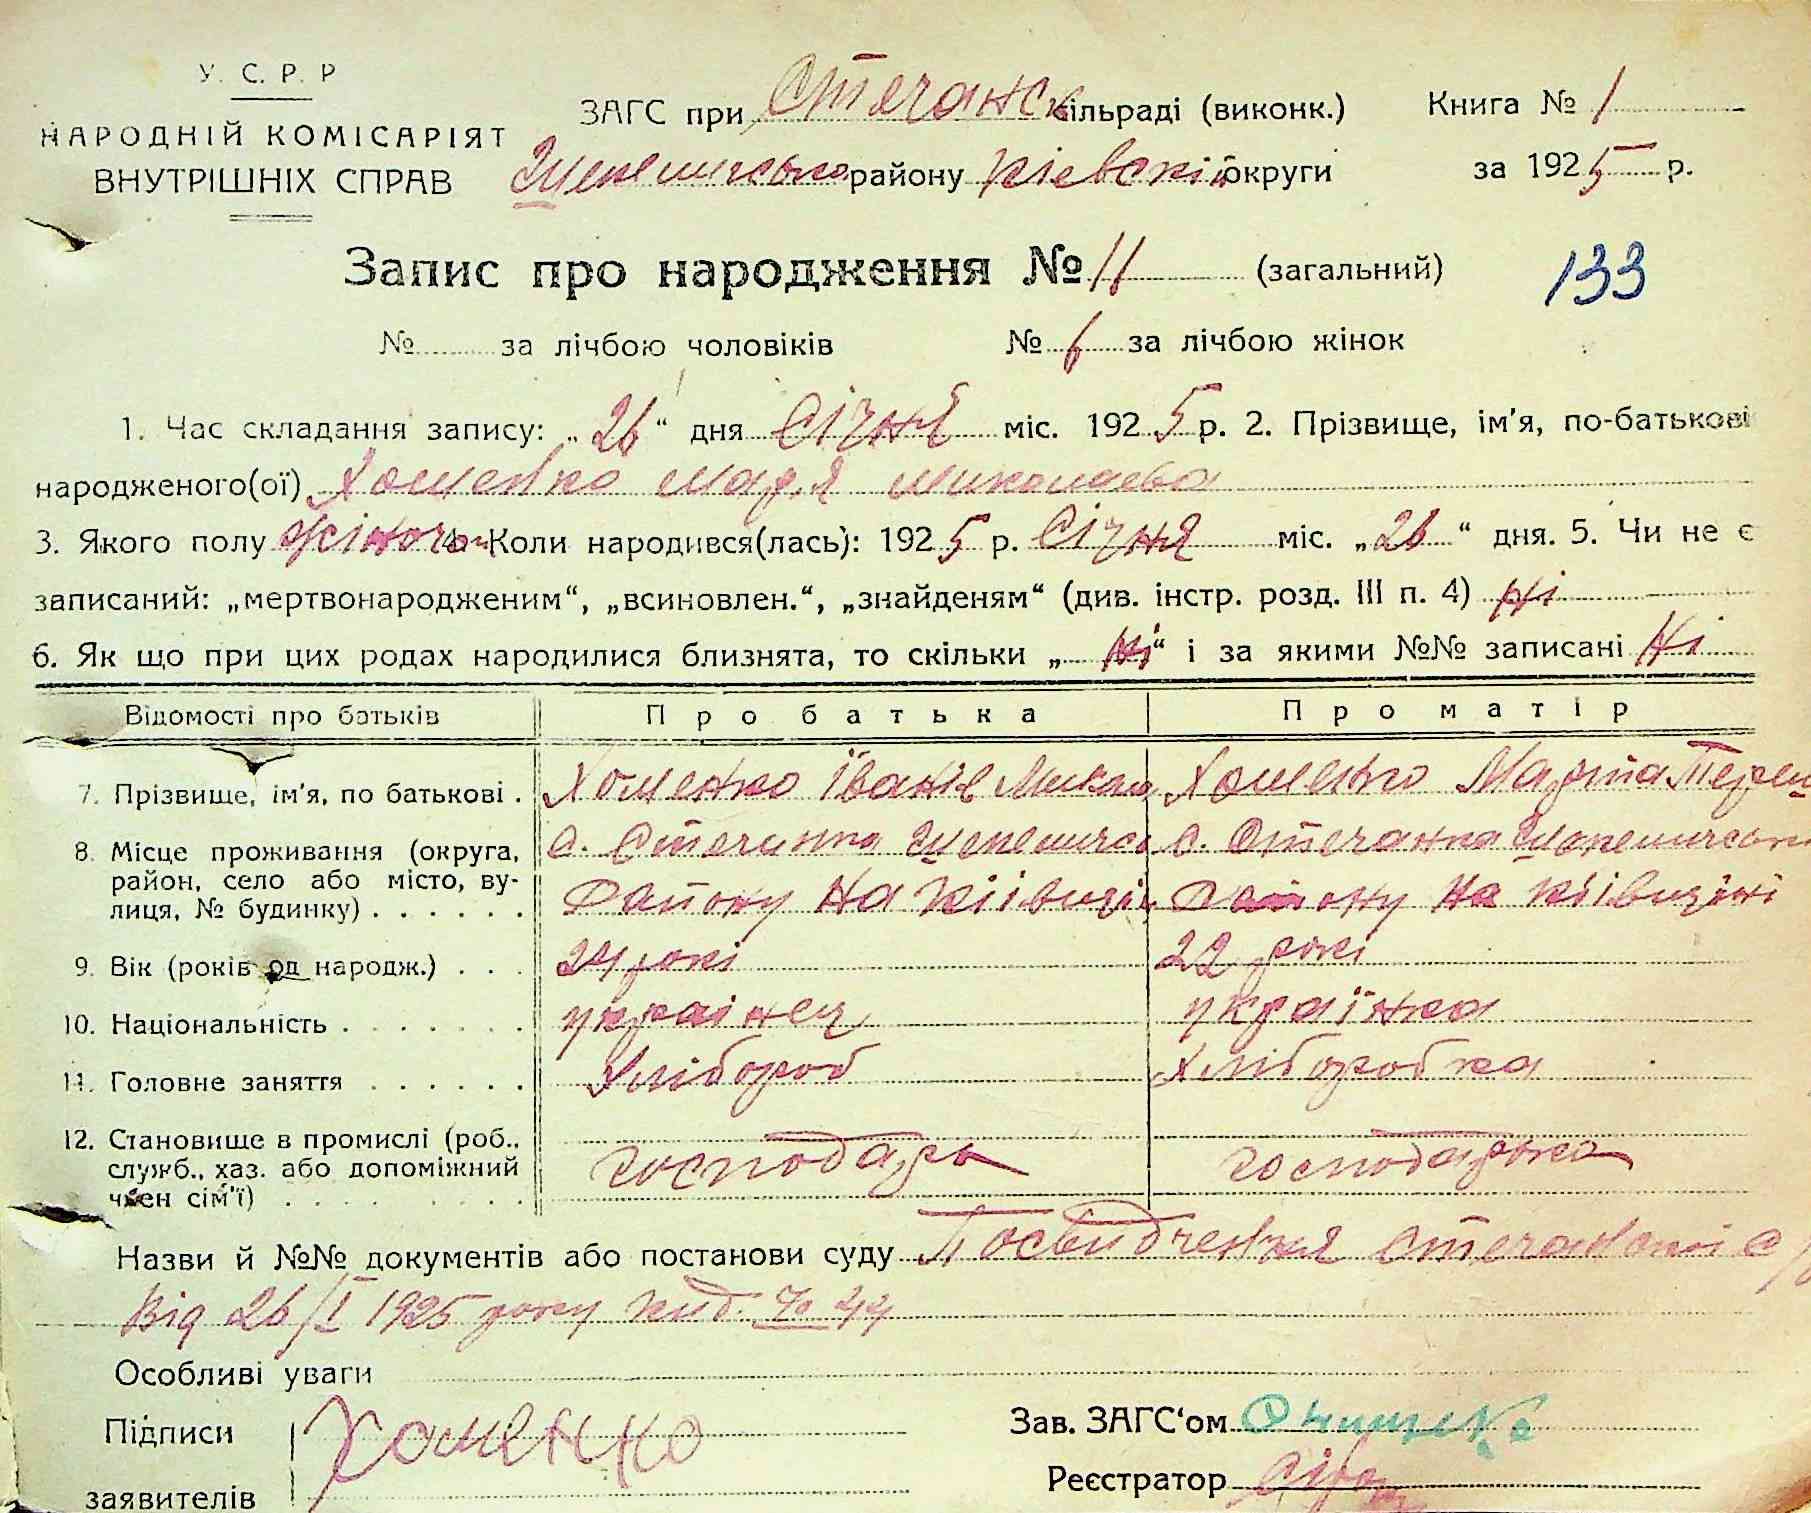 У. С. Р. Р
НАРОДНІЙ КОМІСАРІЯТ
ВНУТРІШНІХ СПРАВ
ЗАГС при Стечанск сільраді (виконк.) Книга № 1
району Кіевскій округи за 1925 р.
Запис про народження № 11 (загальний) 133
№ за лічбою чоловіків № 6 за лічбою жінок
1. Час складання запису: „26“ дня Січня міс. 1925 р. 2. Прізвище, ім'я, по-батькові
народженого(ої) Хоменко Марія Миколаева
3. Якого полу жіночого 4. Коли народився(лась): 1925 р. Січня міс. „26“ дня. 5. Чи не є
записаний: „мертвонародженим“, „всиновлен.“, „знайденям“ (див. інстр. розд. III п. 4) ні
6. Як що при цих родах народилися близнята, то скільки „ні“ і за якими №№ записані Ні
Відомості про батьків Про батька Про матір
7. Прізвище, ім'я, по батькові . Хоменко Хоменко
8. Місце проживання (округа, с. с. Стечанка
район, село або місто, ву- Району на Київщині Району на Київщині
лиця, № будинку) . . . . . .
9. Вік (років од народж.) . . . 24 рокі 22 рокі
10. Національність . . . . . . . українец українка
11. Головне заняття . . . . . . хлібороб хліборобка
12. Становище в промислі (роб., господарь господарка
служб., хаз. або допоміжний
член сім'ї) . . . . . . . .
Назви й №№ документів або постанови суду Посвідчення Стечанскої с/р
Від 26/I 1925 року № 44
Особливі уваги
Підписи Хоменко Зав. ЗАГС‘ом
заявителів Реєстратор